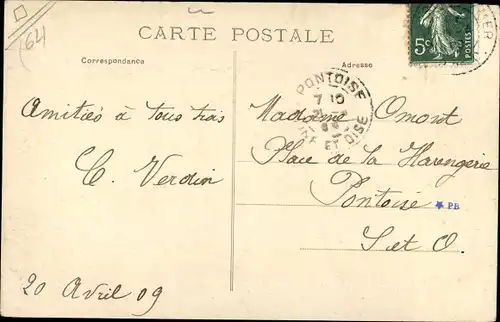 64
CARTE POSTALE
Correspondance
Adresse
5c
POSTES
PONTOISE
ET OISE
Amitiés à tous trois
C. Verdin
20 Avril 09
Madame Omont
Place de la Harengerie
Pontoise
PB
S et O.